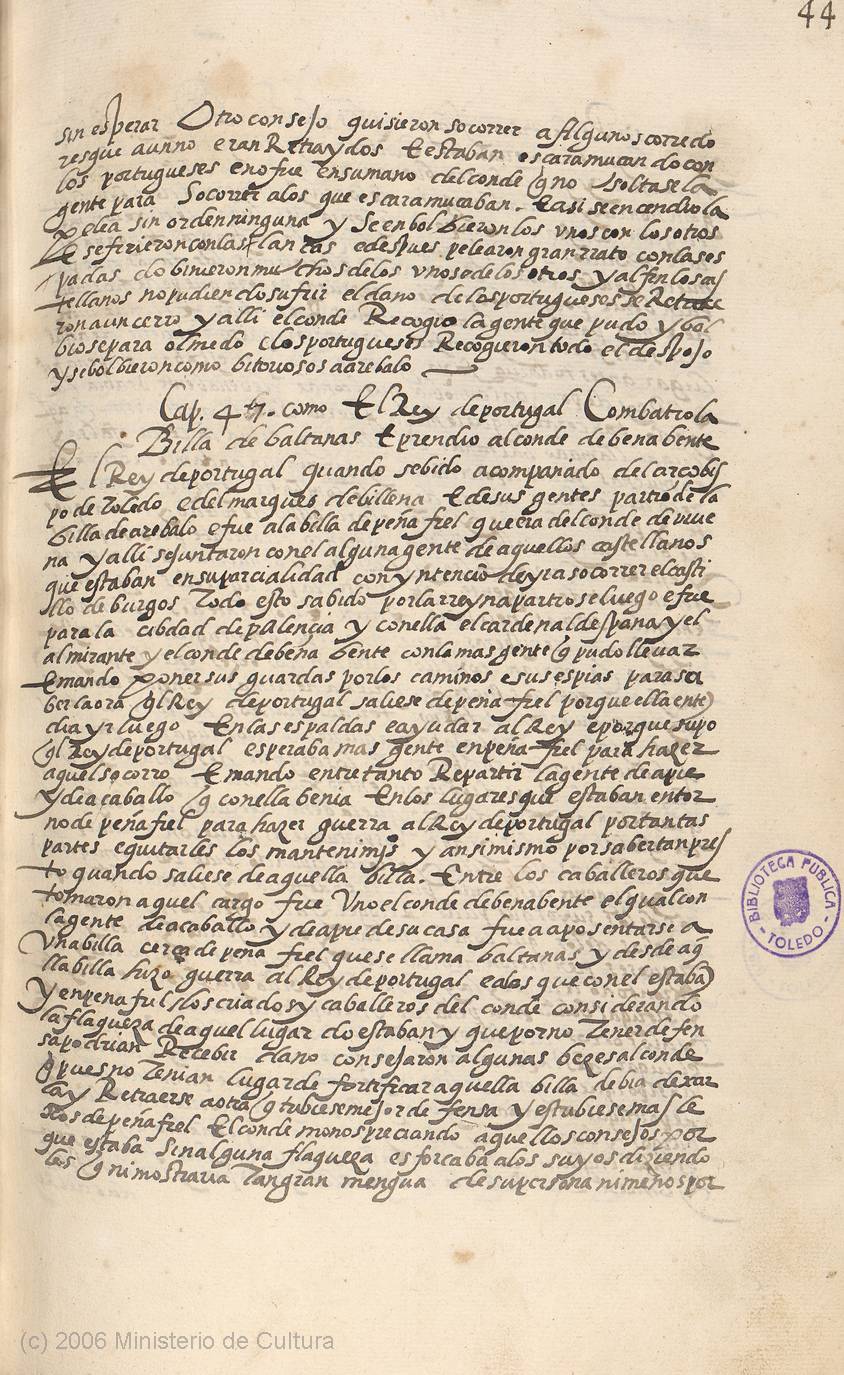 44
sin esperar Otro consejo quisieron socorrer a Algunos corredo
res que aunno eran Retraydos E estaban escaramucando con
los portugueses e no fue ensumano del conde q no soltase la
gente para Socorrer alos que escaramucaban. E asi se encendio la
pelea sin orden ninguna y Se enbolbieron los unos con los otros
E se firieron con las lanzas e despues pelearon gran rrato con las es
padas do binieron muchos de los unos e de los otros y al fin los cas
tellanos no pudiendo sufrir el dano de los portugueses se Retraxe
ron a un cerro y alli el conde Recogio la gente que pudo y bol
biose para olmedo e los portugueses Recogieron todo el despojo
y se bolbieron como bitoriosos a arebalo
Cap. 47. como El Rey de portugal Combatio la
Billa de baltanas E prendio al conde de benabente
El Rey de portugal quando sebido acompañado del arcobis
po de Toledo e del marques de billena E de sus gentes partio de la
billa de arebalo e fue a la billa de peña fiel que era del conde de urue
na y alli se juntaron con el alguna gente de aquellos castellanos
que estaban en su parcialidad con yntencio de yr a socorrer el casti
llo de burgos Todo esto sabido por la rreyna partiose luego e fue
para la cibdad de palençia y con ella el cardenal despana y el
almirante y el conde de bena bente con la mas gente q pudo llevar
E mando poner sus guardas por los caminos e sus espias para sa
ber la ora ql Rey de portugal saliese de peña fiel porque ella ente
dia yr luego En las espaldas e ayudar al Rey e porque supo
ql Rey de portugal esperaba mas gente en peña fiel para hazer
aquel socorro E mando entre tanto Repartir la gente de a pie
y de a caballo q con ella benia En los lugares que estaban entor
no de peña fiel para hazer guerra al Rey de portugal por tantas
partes e quitarles los mantenimjs y ansimismo por saber tan pres
to quando saliese de aquella billa. Entre los caballeros que
tomaron aquel cargo fue Uno el conde de benabente el qual con
la gente de a caballo y de a pie de su casa fue a aposentarse a
Una billa cerca de peña fiel que se llama baltanas y desde aq
lla billa hizo guerra al Rey de portugal e a los que con el estaba
y en pena fiel los criados y caballeros del conde considerando
la flaqueza de aquel lugar do estaban y que por no Tener defen
sa podrian Recebir dano consejaron algunas bezes al conde
q pues no Tenian lugar de fortificar aquella billa debia dexar
la y Retraerse a otra q tubiese mejor defensa y estubiese mas le
xos de peña fiel El conde monospreciando aquellos consejos por
que estaba Sin alguna flaqueza esforcaba a los suyos diziendo
les q ni mostraria Tan gran mengua de su persona ni menos por
BIBLIOTECA PUBLICA
TOLEDO
(c) 2006 Ministerio de Cultura